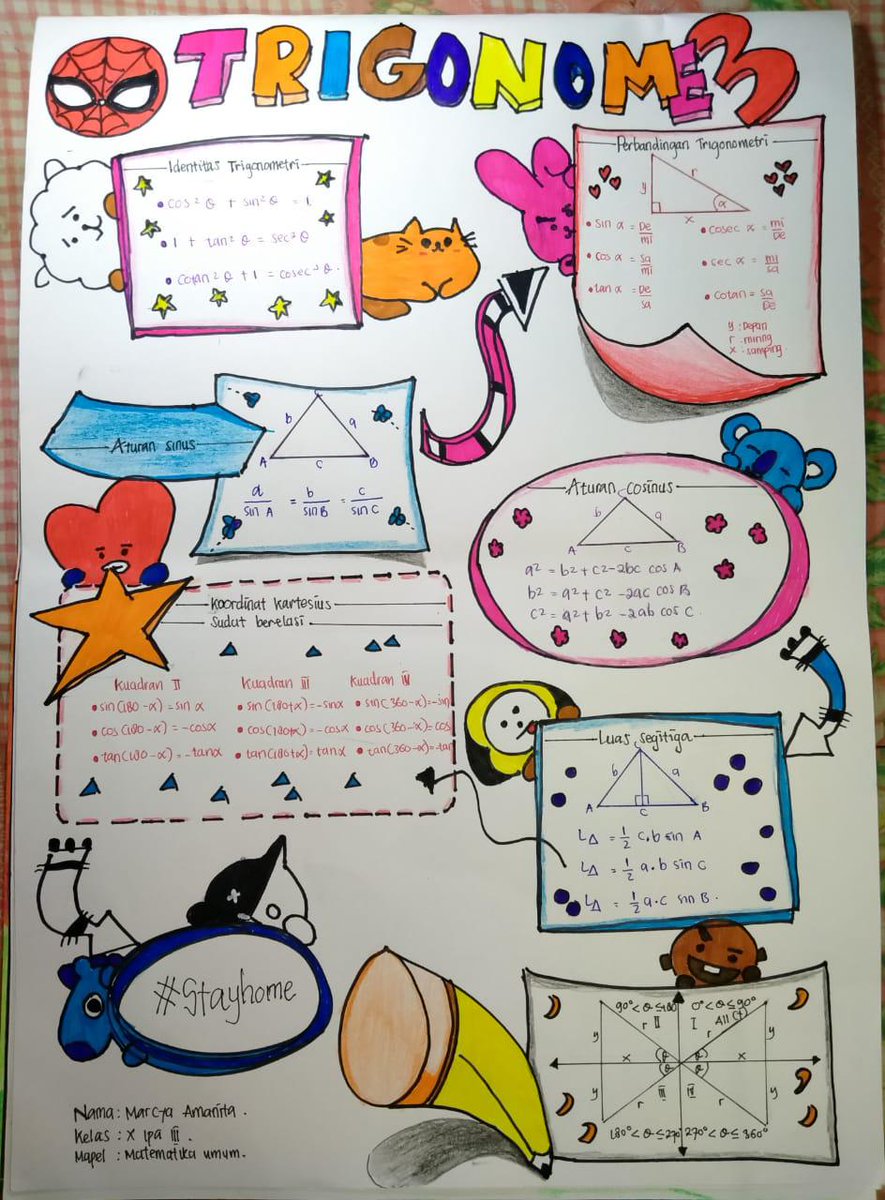 TRIGONOME3
Identitas Trigonometri
• cos² θ + sin² θ = 1
• 1 + tan² θ = sec² θ
• Cotan² θ + 1 = cosec² θ.
Perbandingan Trigonometri
y r α x
• sin α = De/mi
• cosec α = mi/De
• cos α = sa/mi
• sec α = mi/sa
• tan α = De/sa
• cotan = sa/De
y : Depan
r : miring
x : samping
Aturan sinus
C
b a
A c B
a/sin A = b/sin B = c/sin C
Aturan cosinus
C
b a
A c B
a² = b² + c² - 2bc cos A
b² = a² + c² - 2ac cos B
c² = a² + b² - 2ab cos C
Koordinat kartesius
Sudut berelasi
Kuadran II
• sin(180-α) = sin α
• cos(180-α) = -cosα
• tan(180-α) = -tanα
Kuadran III
• sin(180+α) = -sinα
• cos(180+α) = -cosα
• tan(180+α) = tanα
Kuadran IV
• sin(360-α) = -sin
• cos(360-α) = cos
• tan(360-α) = -tan
Luas segitiga
C
b a
A C B
L∆ = 1/2 c.b sin A
L∆ = 1/2 a.b sin C
L∆ = 1/2 a.c sin B.
#Stayhome
90° < θ ≤ 180 0° < θ ≤ 90°
r II I All (+)
y r y
x θ θ x
θ θ
y III IV y
r r
180° < θ ≤ 270° 270° < θ ≤ 360°
Nama : Marcya Amarita.
Kelas : X Ipa III.
Mapel : Matematika umum.